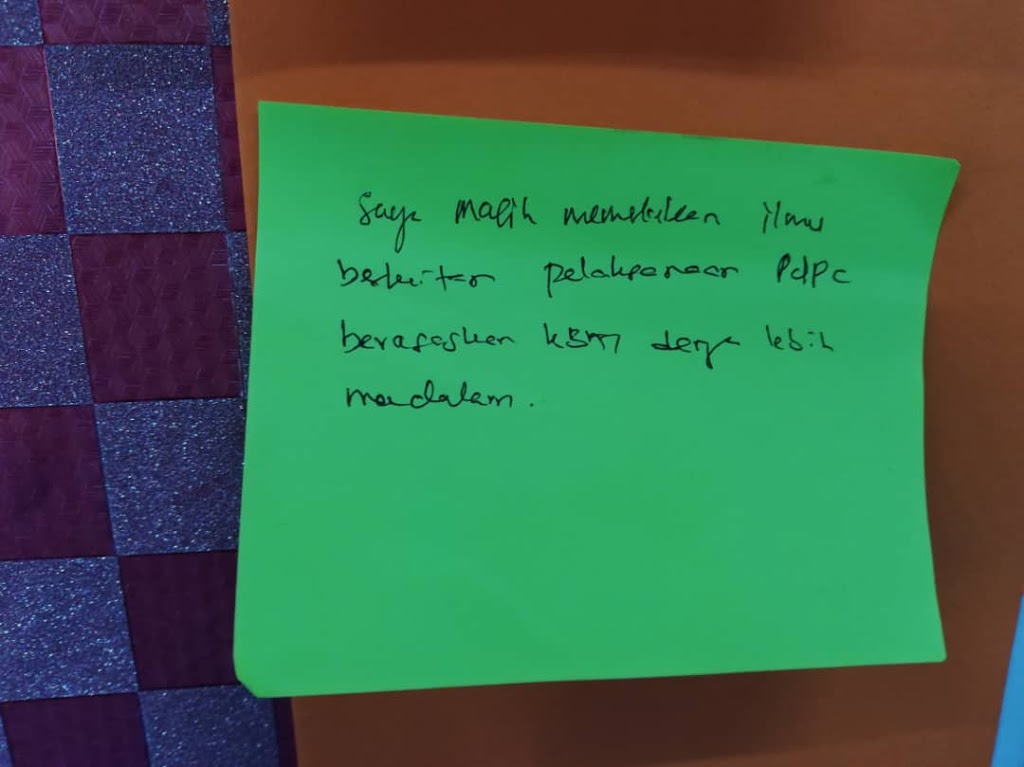 Saya masih memerlukan ilmu
berkaitan pelaksanaan PdPc
berasaskan KBAT dengan lebih
mendalam.